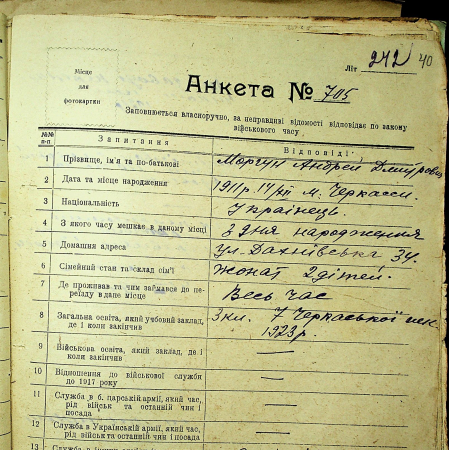 Місце
для
фотокартки
Літ 242 40
Анкета № 705
Заповнюється власноручно, за неправдиві відомості відповідає по закону
військового часу
№№ п-п Запитання Відповіді
1 Прізвище, ім'я та по-батькові Моргун Андрей Дмитрович
2 Дата та місце народження 1911 р. 17/XII м. Черкаси
3 Національність Українець.
4 З якого часу мешкає в даному місці З дня народження
5 Домашня адреса ул. Дахнівська 34.
6 Сімейний стан та склад сім'ї жонат 2 дітей.
7 Де проживав та чим займався до пе-
реїзду в дане місце Весь час
8 Загальна освіта, який учбовий заклад,
де і коли закінчив 3 кл. 7 Черкаської
1923 р.
9 Військова освіта, який заклад, де і
коли закінчив —
10 Відношення до військової служби
до 1917 року —
11 Служба в б. царській армії, який час,
рід військ та останній чин і
посада —
12 Служба в Українській армії, який час,
рід військ та останній чин і посада —
13